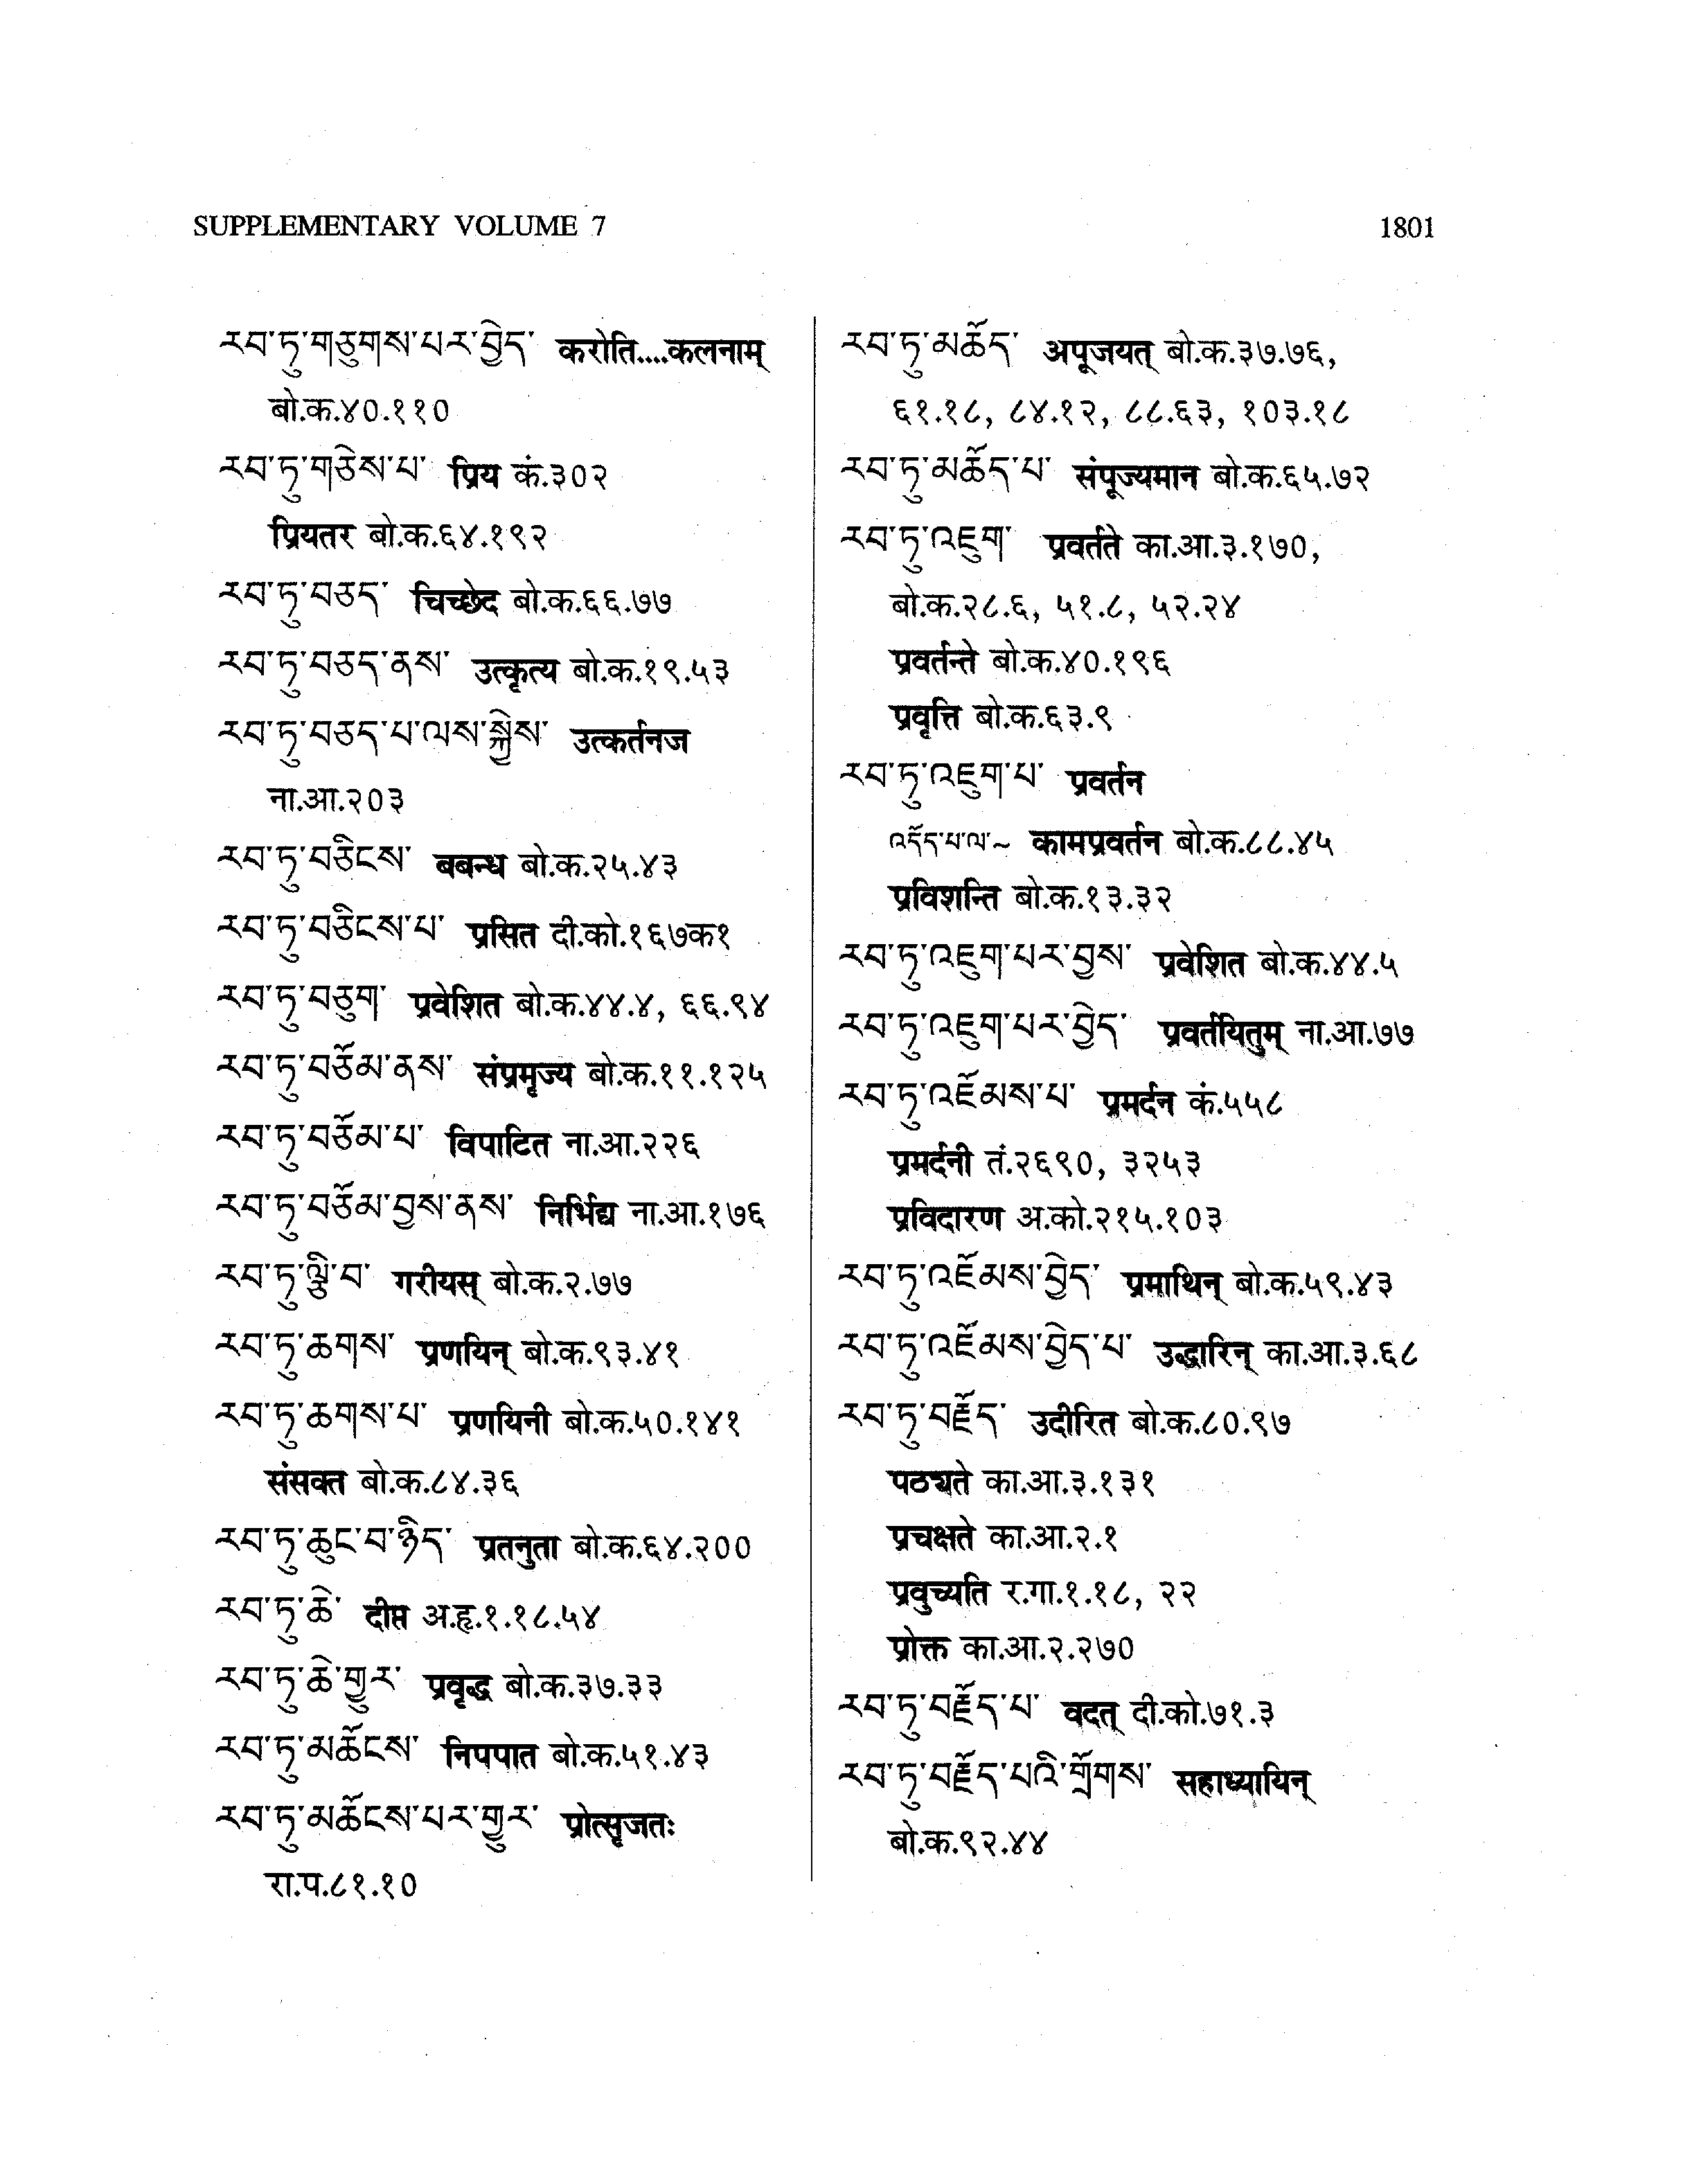 SUPPLEMENTARY VOLUME 7 1801
རབ་ཏུ་གཅུགས་པར་བྱེད་ करोति....कलनाम्
बो.क.४०.११०
རབ་ཏུ་གཅེས་པ་ प्रिय कं.३०२
प्रियतर बो.क.६४.१९२
རབ་ཏུ་བཅད་ चिच्छेद बो.क.६६.७७
རབ་ཏུ་བཅད་ནས་ उत्कृत्य बो.क.१९.५३
རབ་ཏུ་བཅད་པ་ལས་སྐྱེས་ उत्कर्तनज
ना.आ.२०३
རབ་ཏུ་བཅིངས་ बबन्ध बो.क.२५.४३
རབ་ཏུ་བཅིངས་པ་ प्रसित दी.को.१६७क१
རབ་ཏུ་བཅུག་ प्रवेशित बो.क.४४.४, ६६.९४
རབ་ཏུ་བཅོམ་ནས་ संप्रमृज्य बो.क.११.१२५
རབ་ཏུ་བཅོམ་པ་ विपाटित ना.आ.२२६
རབ་ཏུ་བཅོམ་བྱས་ནས་ निर्भिद्य ना.आ.१७६
རབ་ཏུ་ལྕི་བ་ गरीयस् बो.क.२.७७
རབ་ཏུ་ཆགས་ प्रणयिन् बो.क.९३.४१
རབ་ཏུ་ཆགས་པ་ प्रणयिनी बो.क.५०.१४१
संसक्त बो.क.८४.३६
རབ་ཏུ་ཆུང་བ་ཉིད་ प्रतनुता बो.क.६४.२००
རབ་ཏུ་ཆེ་ दीप्त अ.हृ.१.१८.५४
རབ་ཏུ་ཆེ་གྱུར་ प्रवृद्ध बो.क.३७.३३
རབ་ཏུ་མཆོངས་ निपपात बो.क.५१.४३
རབ་ཏུ་མཆོངས་པར་གྱུར་ प्रोत्सृजतः
रा.प.८१.१०
རབ་ཏུ་མཆོད་ अपूजयत् बो.क.३७.७६,
६१.१८, ८४.१२, ८८.६३, १०३.१८
རབ་ཏུ་མཆོད་པ་ संपूज्यमान बो.क.६५.७२
རབ་ཏུ་འཇུག་ प्रवर्तते का.आ.३.१७०,
बो.क.२८.६, ५१.८, ५२.२४
प्रवर्तन्ते बो.क.४०.१९६
प्रवृत्ति बो.क.६३.९
རབ་ཏུ་འཇུག་པ་ प्रवर्तन
འདོད་པ་ལ་~ कामप्रवर्तन बो.क.८८.४५
प्रविशन्ति बो.क.१३.३२
རབ་ཏུ་འཇུག་པར་བྱས་ प्रवेशित बो.क.४४.५
རབ་ཏུ་འཇུག་པར་བྱེད་ प्रवर्तयितुम् ना.आ.७७
རབ་ཏུ་འཇོམས་པ་ प्रमर्दन कं.५५८
प्रमर्दनी तं.२६९०, ३२५३
प्रविदारण अ.को.२१५.१०३
རབ་ཏུ་འཇོམས་བྱེད་ प्रमाथिन् बो.क.५९.४३
རབ་ཏུ་འཇོམས་བྱེད་པ་ उद्धारिन् का.आ.३.६८
རབ་ཏུ་བརྗོད་ उदीरित बो.क.८०.९७
पठ्यते का.आ.३.१३१
प्रचक्षते का.आ.२.१
प्रवुच्यति र.गा.१.१८, २२
प्रोक्त का.आ.२.२७०
རབ་ཏུ་བརྗོད་པ་ वदत् दी.को.७१.३
རབ་ཏུ་བརྗོད་པའི་གྲོགས་ सहाध्यायिन्
बो.क.९२.४४